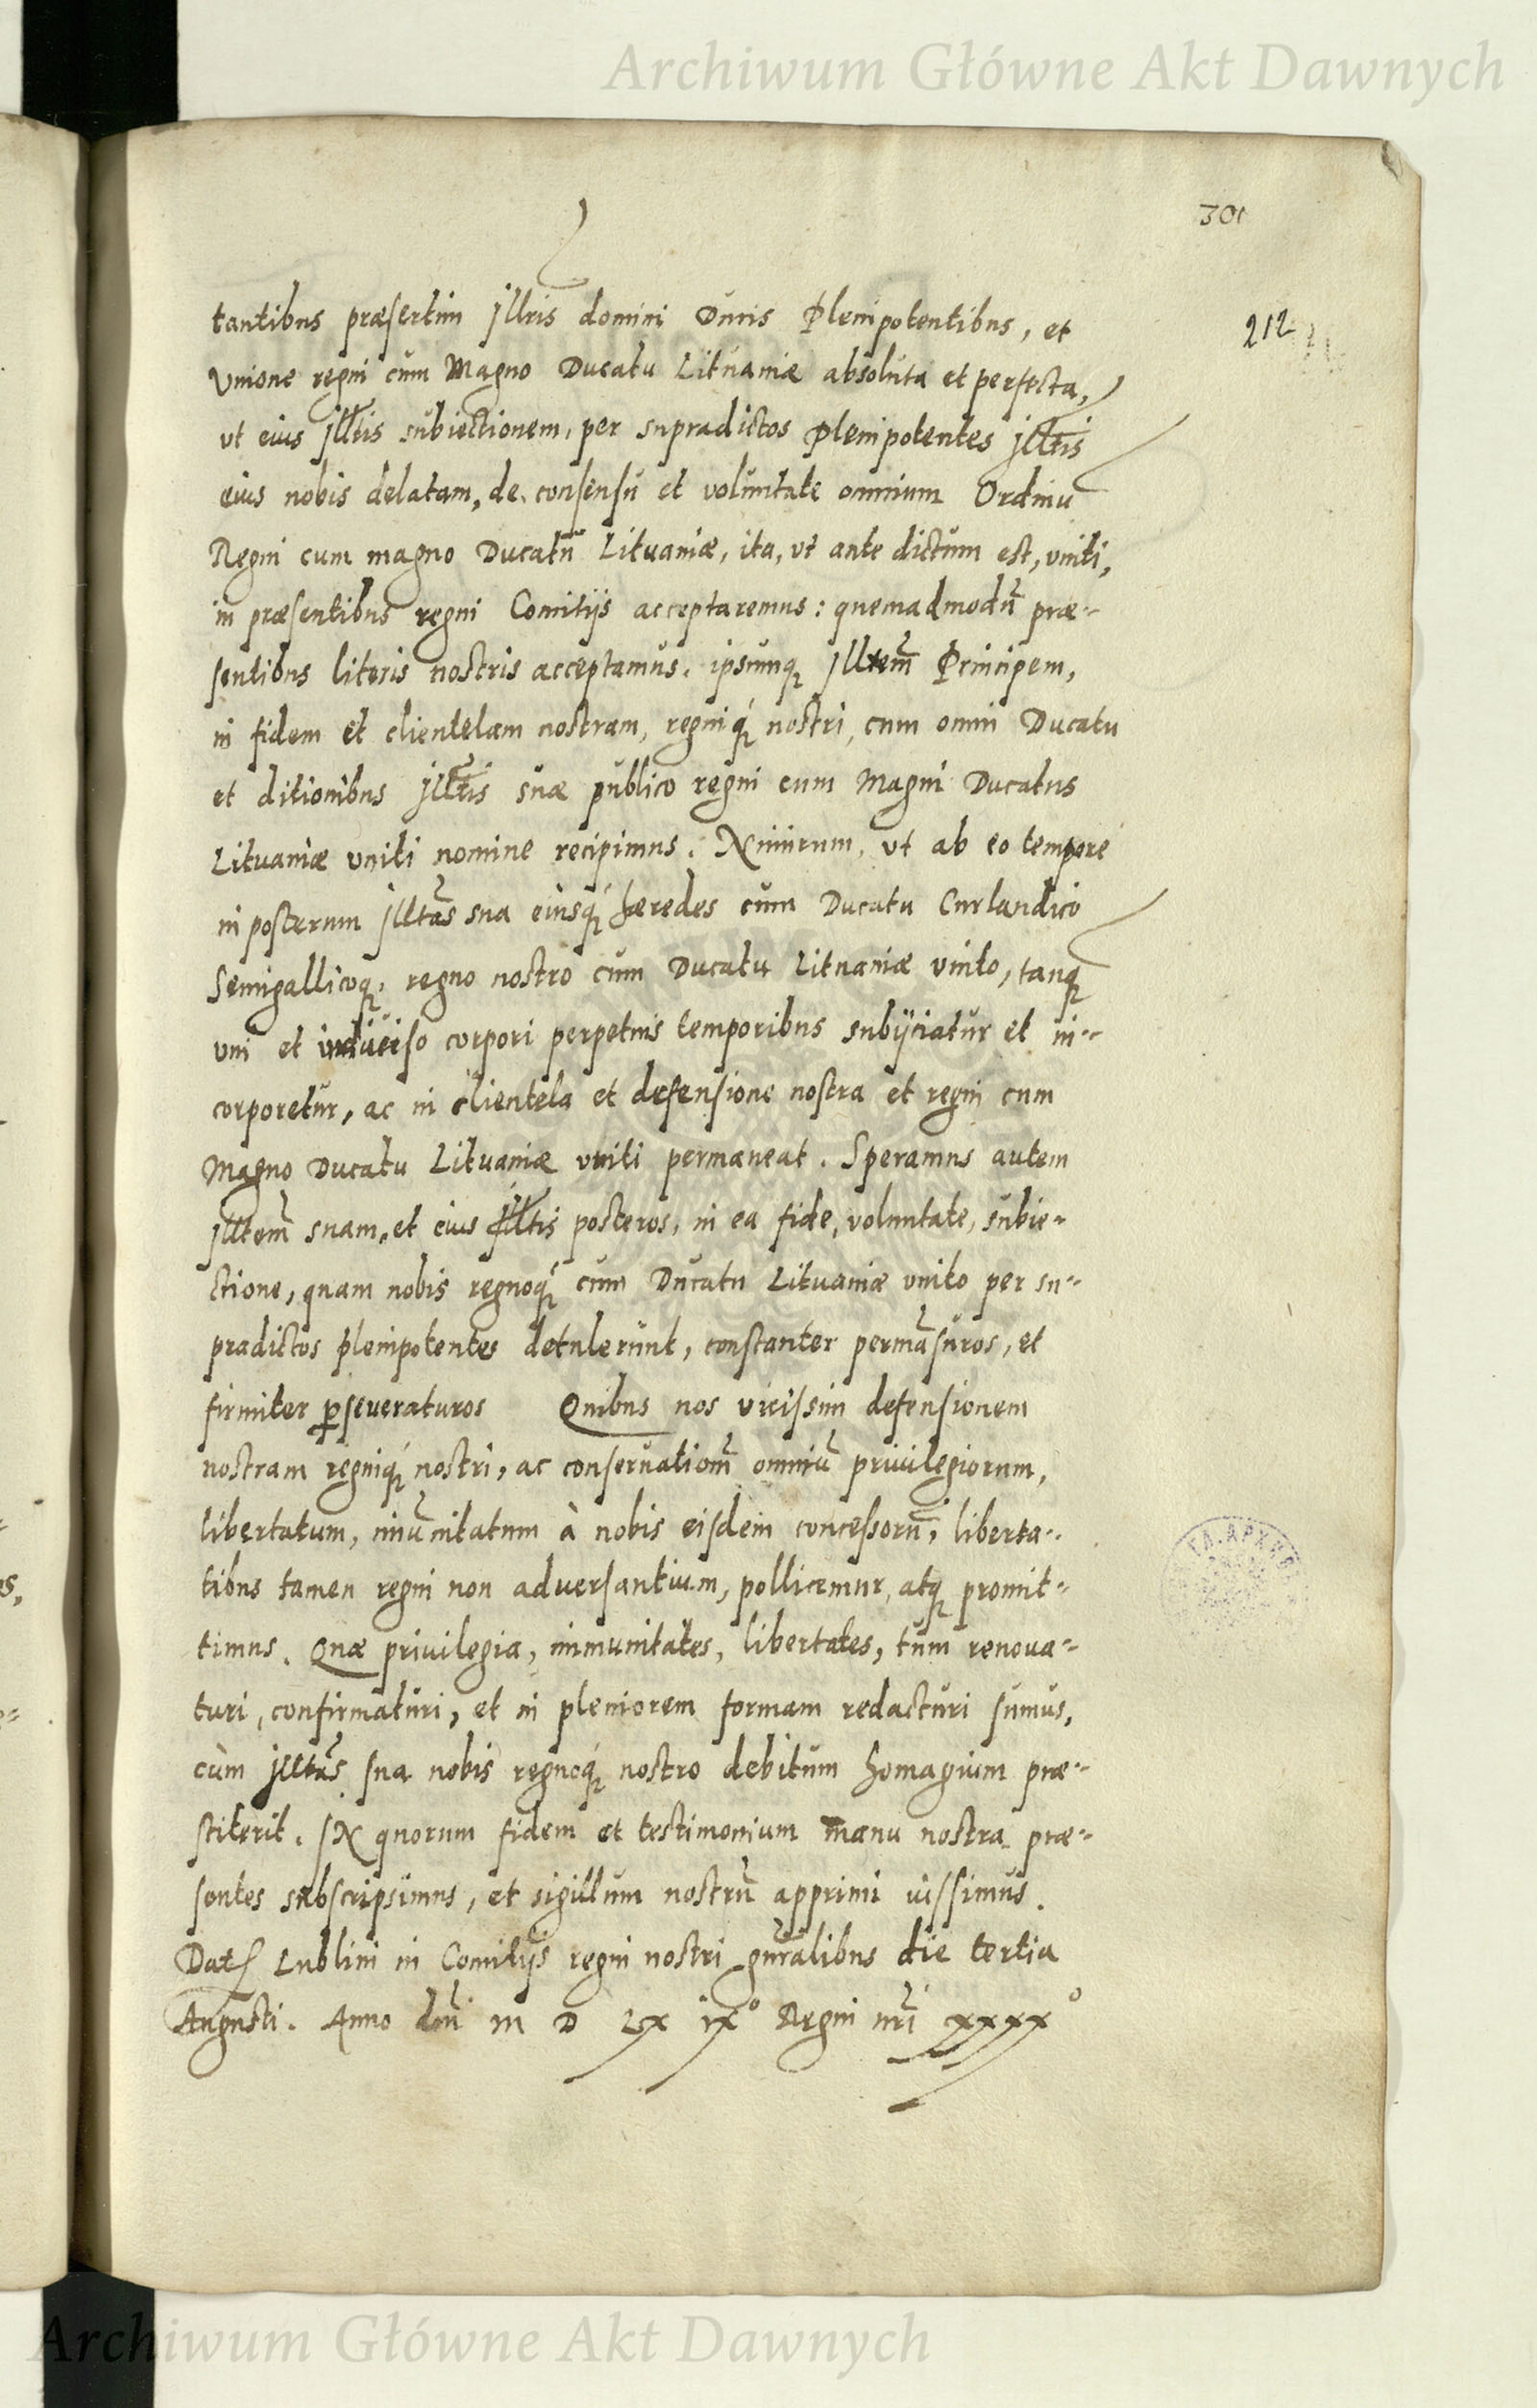 Archiwum Główne Akt Dawnych
301
212
tantibus præsertim Jllris domini Ducis Plenipotentibus, et
Vnione regni cum Magno Ducatu Lituaniæ absoluta et perfecta,
vt eius Jlltis subiectionem, per supradictos Plenipotentes Jlltis
eius nobis delatam, de consensu et voluntate omnium Ordinu
Regni cum magno Ducatū Lituaniæ, ita, vt ante dictum est, vniti,
in præsentibus regni Comitijs acceptaremus: quemadmodū præ-
sentibus literis nostris acceptamus. ipsumq Jlltem̄ Principem,
in fidem et clientelam nostram, regniq́ nostri, cum omni Ducatu
et ditionibus Jlltis suæ publico regni cum Magni Ducatus
Lituaniæ vniti nomine recipimus. Nimirum, vt ab eo tempore
in posterum Jlltas sua eiusq́ hæredes cum Ducatu Curlandico
Semigallicoq, regno nostro cum Ducatu Lituaniæ vnito, tanq
vni et indiuiso corpori perpetuis temporibus subijciatur et in-
corporetur, ac in clientela et defensione nostra et regni cum
Magno Ducatu Lituaniæ vniti permaneat. Speramus autem
Jlltem̄ suam, et eius Jlltis posteros, in ea fide, voluntate, subie-
ctione, quam nobis regnoq́ cum Ducatu Lituaniæ vnito per su-
pradictos plenipotentes detulerunt, constanter permāsuros, et
firmiter ꝑseueraturos Quibus nos vicissim defensionem
nostram regniq́ nostri, ac conseruationē omniū priuilegiorum,
libertatum, imūnitatum à nobis eisdem concessorū, liberta-
tibus tamen regni non aduersantium, pollicemur, atq promit-
timus. Quæ priuilegia, immunitates, libertates, tum renoua-
turi, confirmaturi, et in pleniorem formam redacturi sumus,
cùm Jlltas sua nobis regnoq́ nostro debitum homagium præ-
stiterit. IN quorum fidem et testimonium manu nostra præ-
sentes subscripsimus, et sigillum nostrū apprimi iussimus.
Dat Lublini in Comitijs regni nostri gnralibus die tertia
Augusti. Anno dn̄i M D LX IX° Regni nr̄i XXXX°
Archiwum Główne Akt Dawnych